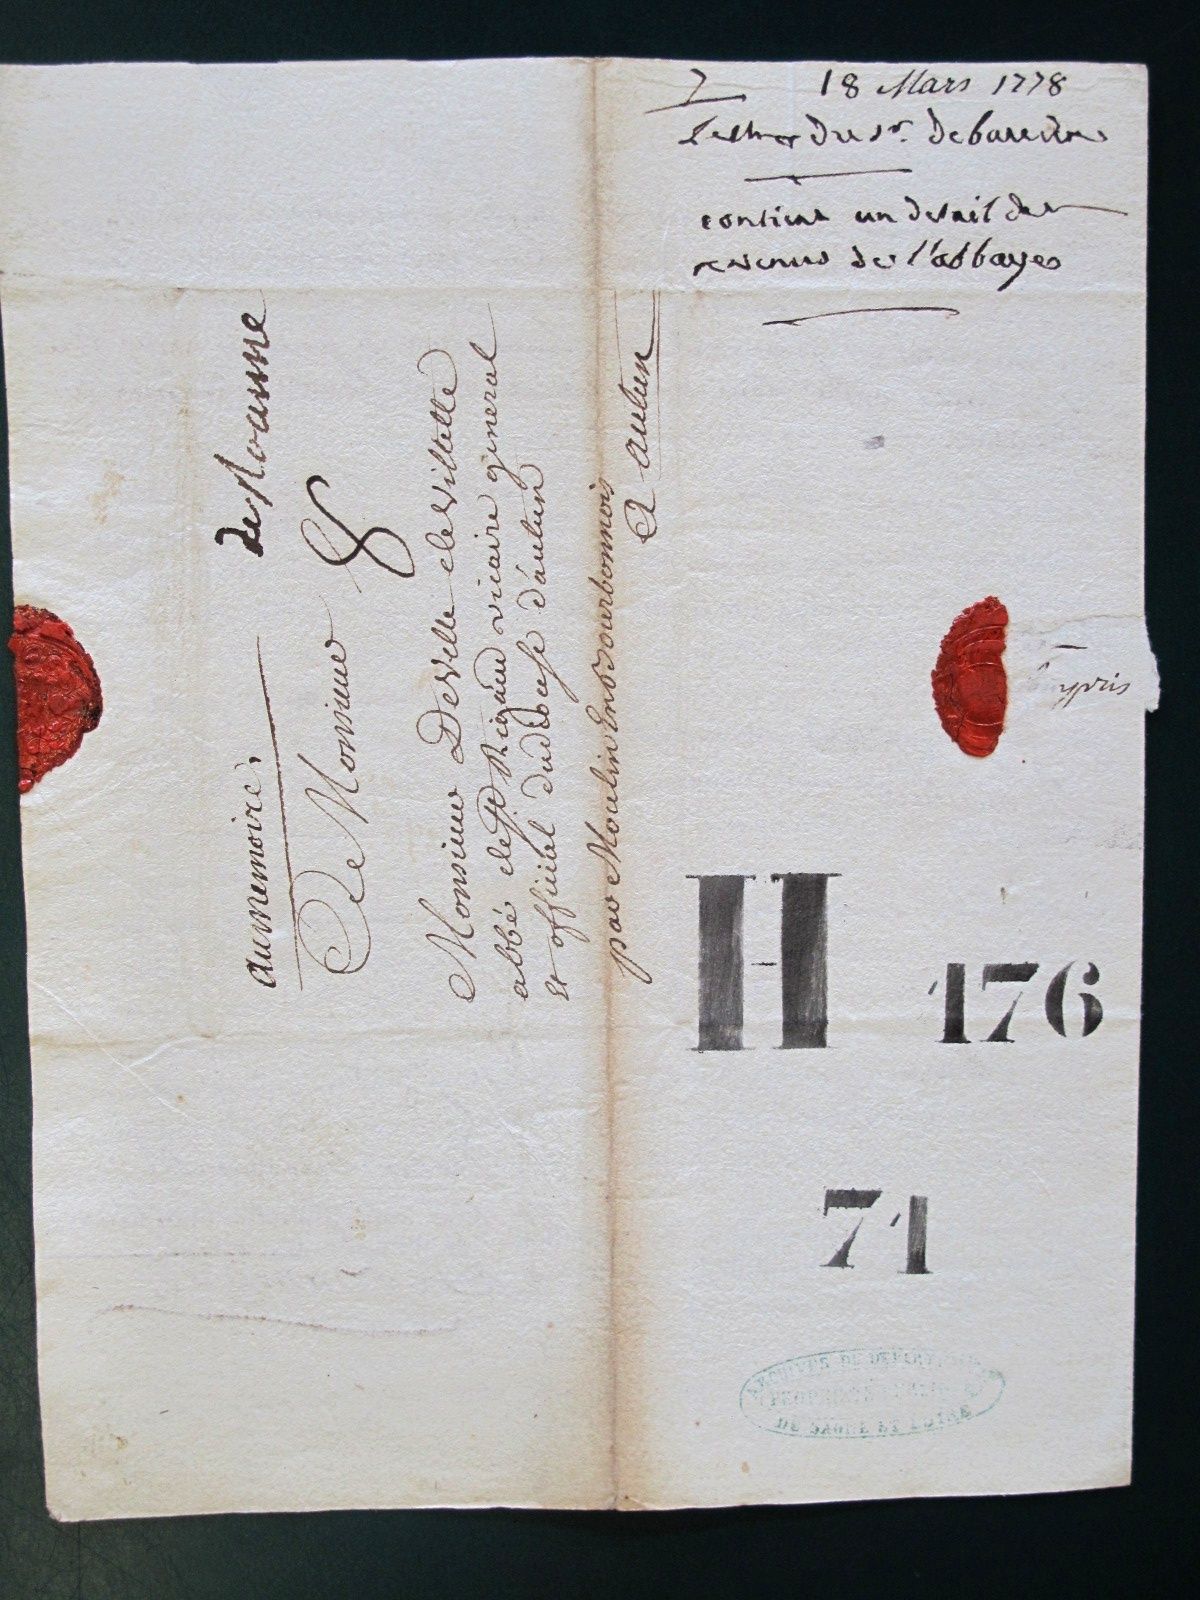 7 18 Mars 1778
Lettre du sr. Debaredon
contient un detail des
revenus de l'abbaye
de Roanne
au memoire,
A Monsieur 8
Monsieur Deville de villette
abbé de St Rigaud vicaire general
et official du diocese d'autun
par Moulin En Bourbonnois
A autun
H
176
71
ARCHIVES DU DEPARTEMENT
PROPRIETE PUBLIQUE
DE SAONE ET LOIRE